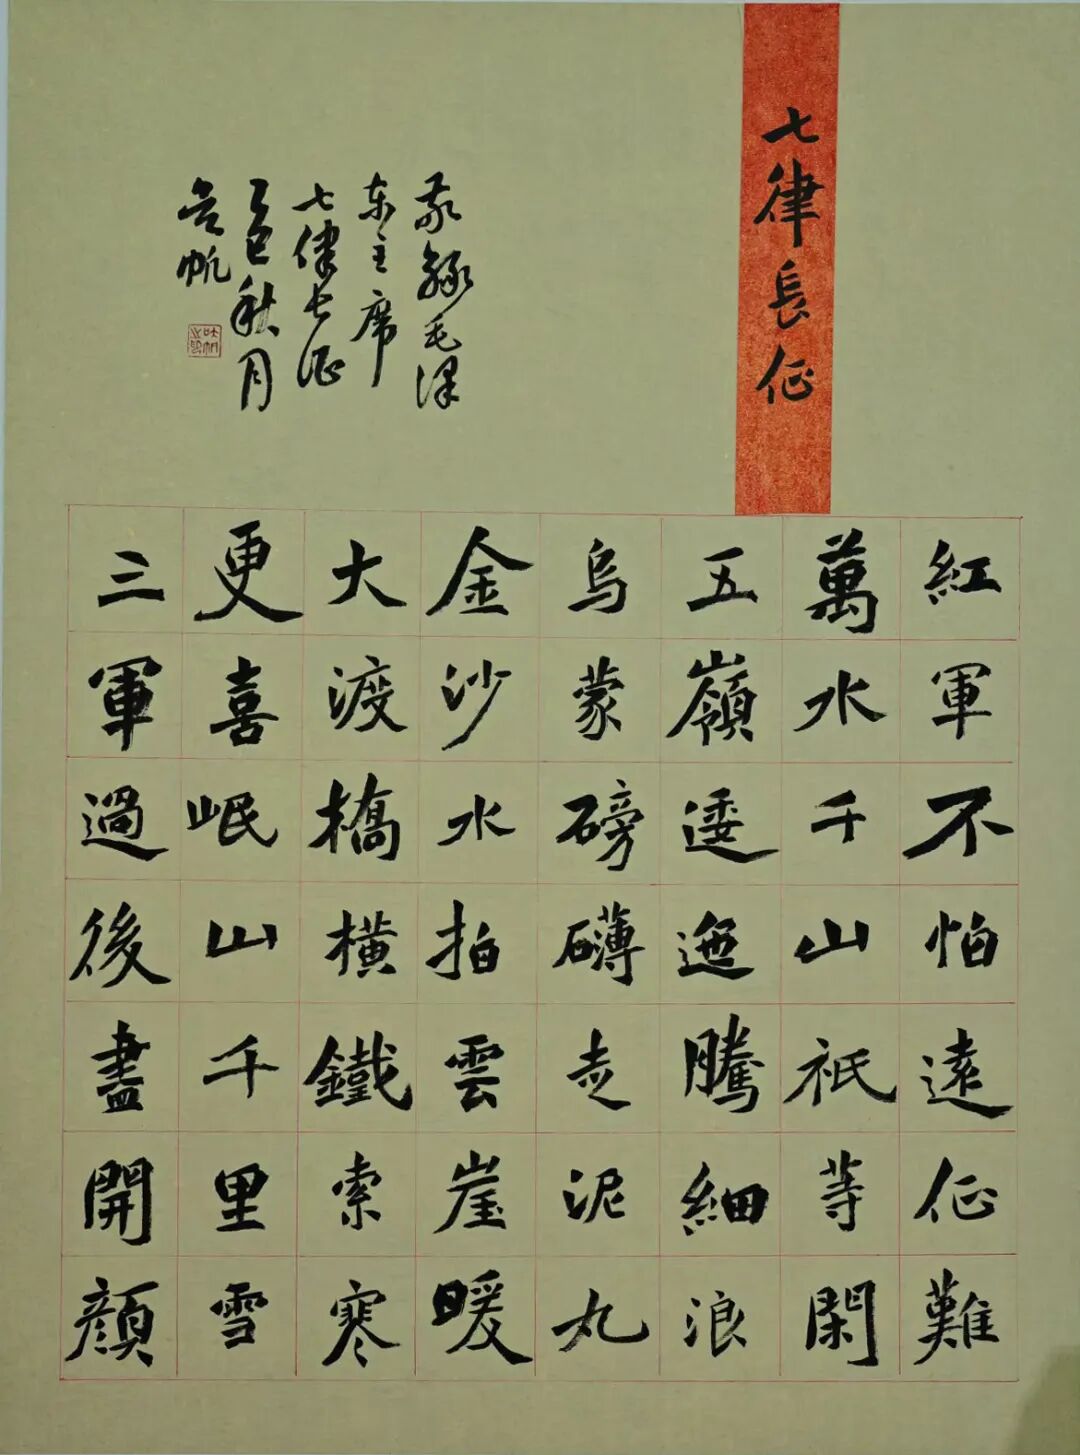 七律長征
紅軍不怕遠征難
萬水千山祇等閑
五嶺逶迤騰細浪
烏蒙磅礴走泥丸
金沙水拍雲崖暖
大渡橋橫鐵索寒
更喜岷山千里雪
三軍過後盡開顏
敬録毛泽
东主席
七律长征
乙巳秋月
帆